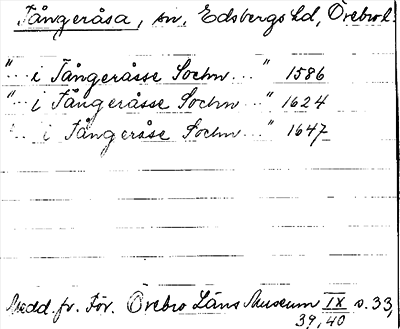 Tångeråsa, sn, Edsbergs hd, Örebro l.
"... i Tångeråsse Sochn ..." 1586
"... i Tångeråsse Sochn ..." 1624
"... i Tångeråse Sochn ..." 1647
Medd. fr. För. Örebro Läns Museum IX s. 33,
39, 40